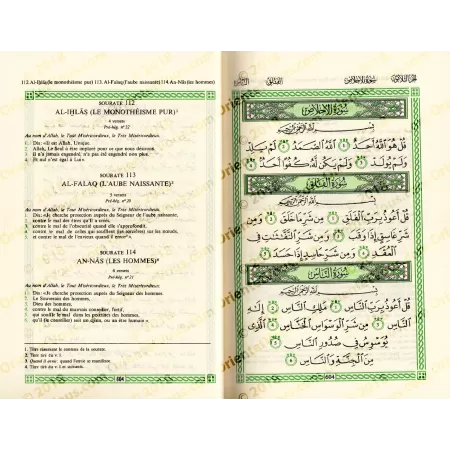 112.Al-Iḫlâṣ(le monothéisme pur) 113. Al-Falaq(l'aube naissante) 114.An-Nâs (les hommes)
SOURATE 112
AL-IḪLÂṢ (LE MONOTHÉISME PUR)¹
4 versets
Pré-hég. n° 22
Au nom d'Allah, le Tout Miséricordieux, le Très Miséricordieux.
1. Dis: «Il est Allah, Unique.
2. Allah, Le Seul à être imploré pour ce que nous désirons.
3. Il n'a jamais engendré, n'a pas été engendré non plus.
4. Et nul n'est égal à Lui».
SOURATE 113
AL-FALAQ (L'AUBE NAISSANTE)²
5 versets
Pré-hég. n° 20
Au nom d'Allah, le Tout Miséricordieux, le Très Miséricordieux.
1. Dis: «Je cherche protection auprès du Seigneur de l'aube naissante,
2. contre le mal des êtres qu'Il a créés,
3. contre le mal de l'obscurité quand elle s'approfondit,
4. contre le mal de celles qui soufflent (les sorcières) sur les nœuds,
5. et contre le mal de l'envieux quand il envie³».
SOURATE 114
AN-NÂS (LES HOMMES)⁴
6 versets
Pré-hég. n° 21
Au nom d'Allah, le Tout Miséricordieux, le Très Miséricordieux.
1. Dis: «Je cherche protection auprès du Seigneur des hommes,
2. Le Souverain des hommes,
3. Dieu des hommes,
4. contre le mal du mauvais conseiller, furtif,
5. qui souffle le mal dans les poitrines des hommes,
6. qu'il (le conseiller) soit un djinn, ou un être humain».
1. Titre résumant le contenu de la sourate.
2. Titre tiré du v. 1.
4. Titre tiré du v.1 et suivants.
604
سُورَةُ الإِخْلَاصِ
بِسْمِ اللَّهِ الرَّحْمَٰنِ الرَّحِيمِ
قُلْ هُوَ اللَّهُ أَحَدٌ ١ اللَّهُ الصَّمَدُ ٢ لَمْ يَلِدْ
وَلَمْ يُولَدْ ٣ وَلَمْ يَكُن لَّهُ كُفُوًا أَحَدٌ ٤
سُورَةُ الْفَلَقِ
بِسْمِ اللَّهِ الرَّحْمَٰنِ الرَّحِيمِ
قُلْ أَعُوذُ بِرَبِّ الْفَلَقِ ١ مِن شَرِّ مَا خَلَقَ ٢ وَمِن
شَرِّ غَاسِقٍ إِذَا وَقَبَ ٣ وَمِن شَرِّ النَّفَّاثَاتِ فِي
الْعُقَدِ ٤ وَمِن شَرِّ حَاسِدٍ إِذَا حَسَدَ ٥
سُورَةُ النَّاسِ
بِسْمِ اللَّهِ الرَّحْمَٰنِ الرَّحِيمِ
قُلْ أَعُوذُ بِرَبِّ النَّاسِ ١ مَلِكِ النَّاسِ ٢ إِلَٰهِ
النَّاسِ ٣ مِن شَرِّ الْوَسْوَاسِ الْخَنَّاسِ ٤ الَّذِي
يُوَسْوِسُ فِي صُدُورِ النَّاسِ ٥
مِنَ الْجِنَّةِ وَالنَّاسِ ٦
604